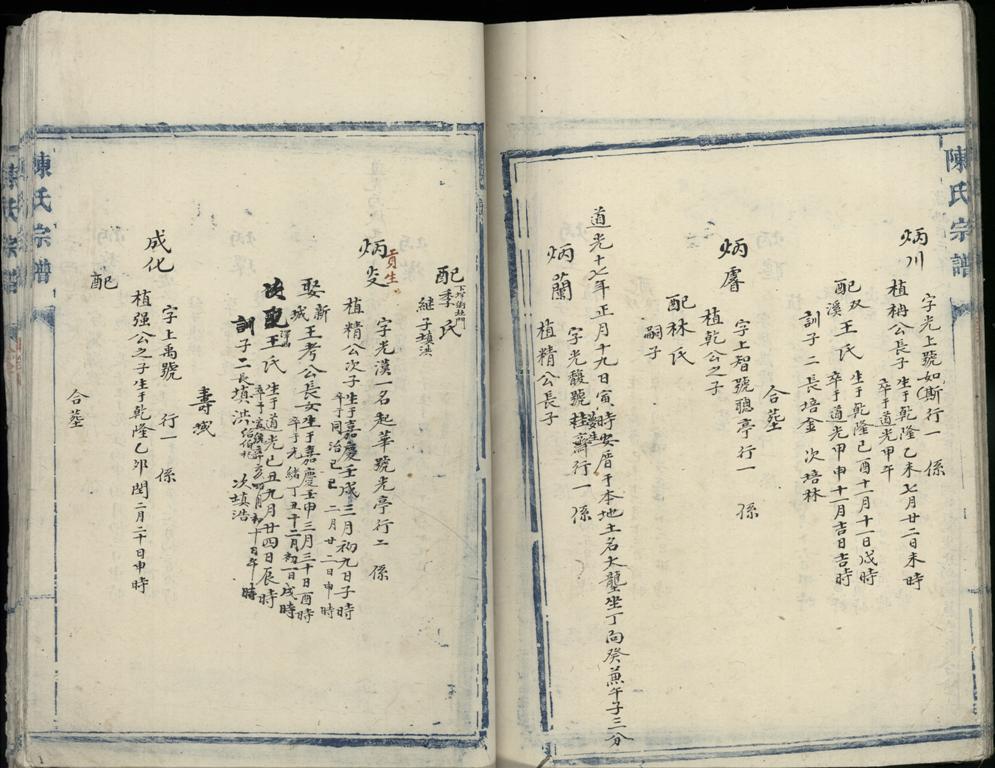 陳氏宗譜
炳川
字光上號如斯行一 係
植柟公長子生于乾隆乙未七月廿二日未時
卒于道光甲午
配双溪王氏生于乾隆己酉十一月十一日戌時
卒于道光甲申十一月吉日吉時
訓子二長培金 次培林
合塟
炳睿
字上智號聰亭行一 係
植乾公之子
配林氏
嗣子
道光十七年正月十九日寅時安厝于本地土名大壟坐丁向癸兼午子三分
炳蘭
字光馥號桂齋行一 係
植精公長子
配下坪衕杜門季氏
継子填洪
炳炎
貢生
字光漢一名起華號光亭行二 係
植精公次子生于嘉慶壬戌三月初九日子時
卒于同治己巳二月廿二日申時
娶新城王考公長女生于嘉慶壬申三月三十日酉時
卒于光緒丁丑十二月初一日戌時
次配王氏生于道光己丑九月廿四日辰時
訓子二長填洪 次填浩
壽域
成化
字上禹號 行一 係
植强公之子生于乾隆乙卯閏二月二十日申時
配
合塟
陳氏宗譜